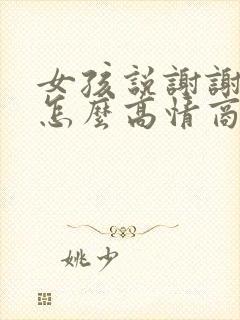 女孩說謝謝
怎麼高情商
姚少